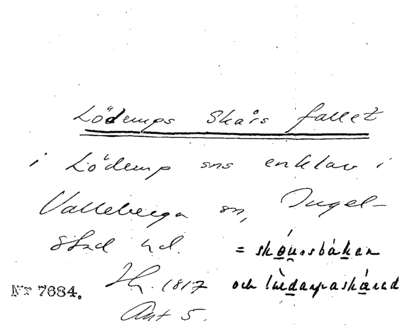 Lödemps Skårs fallet
i Lödemp sns enklav i
Valleberga sn, Ingel-
stad hd. = skånsbáken
Nr 7684. Jh. 1817 och lùdampaskåred
Akt 5.